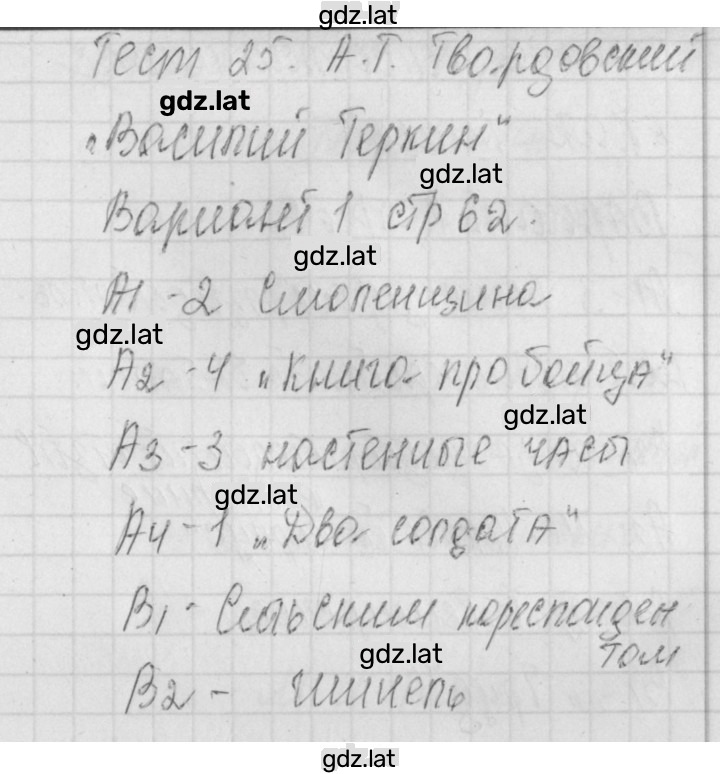 gdz.lat
Тест 25. А.Т. Твардовский
gdz.lat
„Василий Теркин"
gdz.lat
Вариант 1 стр 62.
gdz.lat
А1 - 2 Смоленщина
gdz.lat
А2 - 4 „Книга про бойца"
gdz.lat
А3 - 3 настенные часы
gdz.lat
А4 - 1 „Два солдата"
В1 - Сельским кореспонден
том
gdz.lat
В2 - шинель
gdz.lat